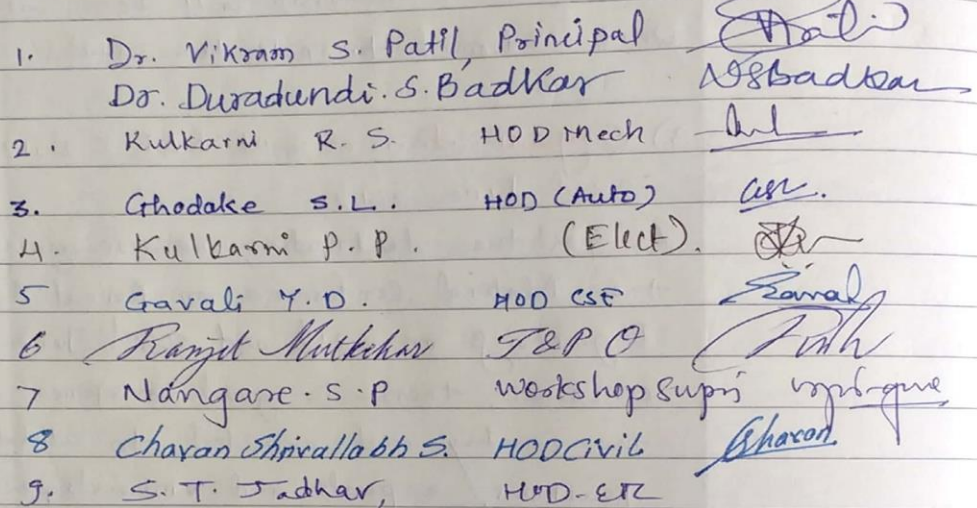 1. Dr. Vikram S. Patil, Principal
Dr. Duradundi. S. Badkar NSBadkar
2. Kulkarni R. S. HOD Mech
3. Ghodake S.L. HOD (Auto)
4. Kulkarni P. P. (Elect).
5 Gavali Y.D. HOD CSE
6 Ranjit Mutkekar T&P O
7 Nangare. S. P Workshop Supri
8 Chavan Shrivallabh S. HOD Civil
9. S. T. Jadhav, HOD-ETC